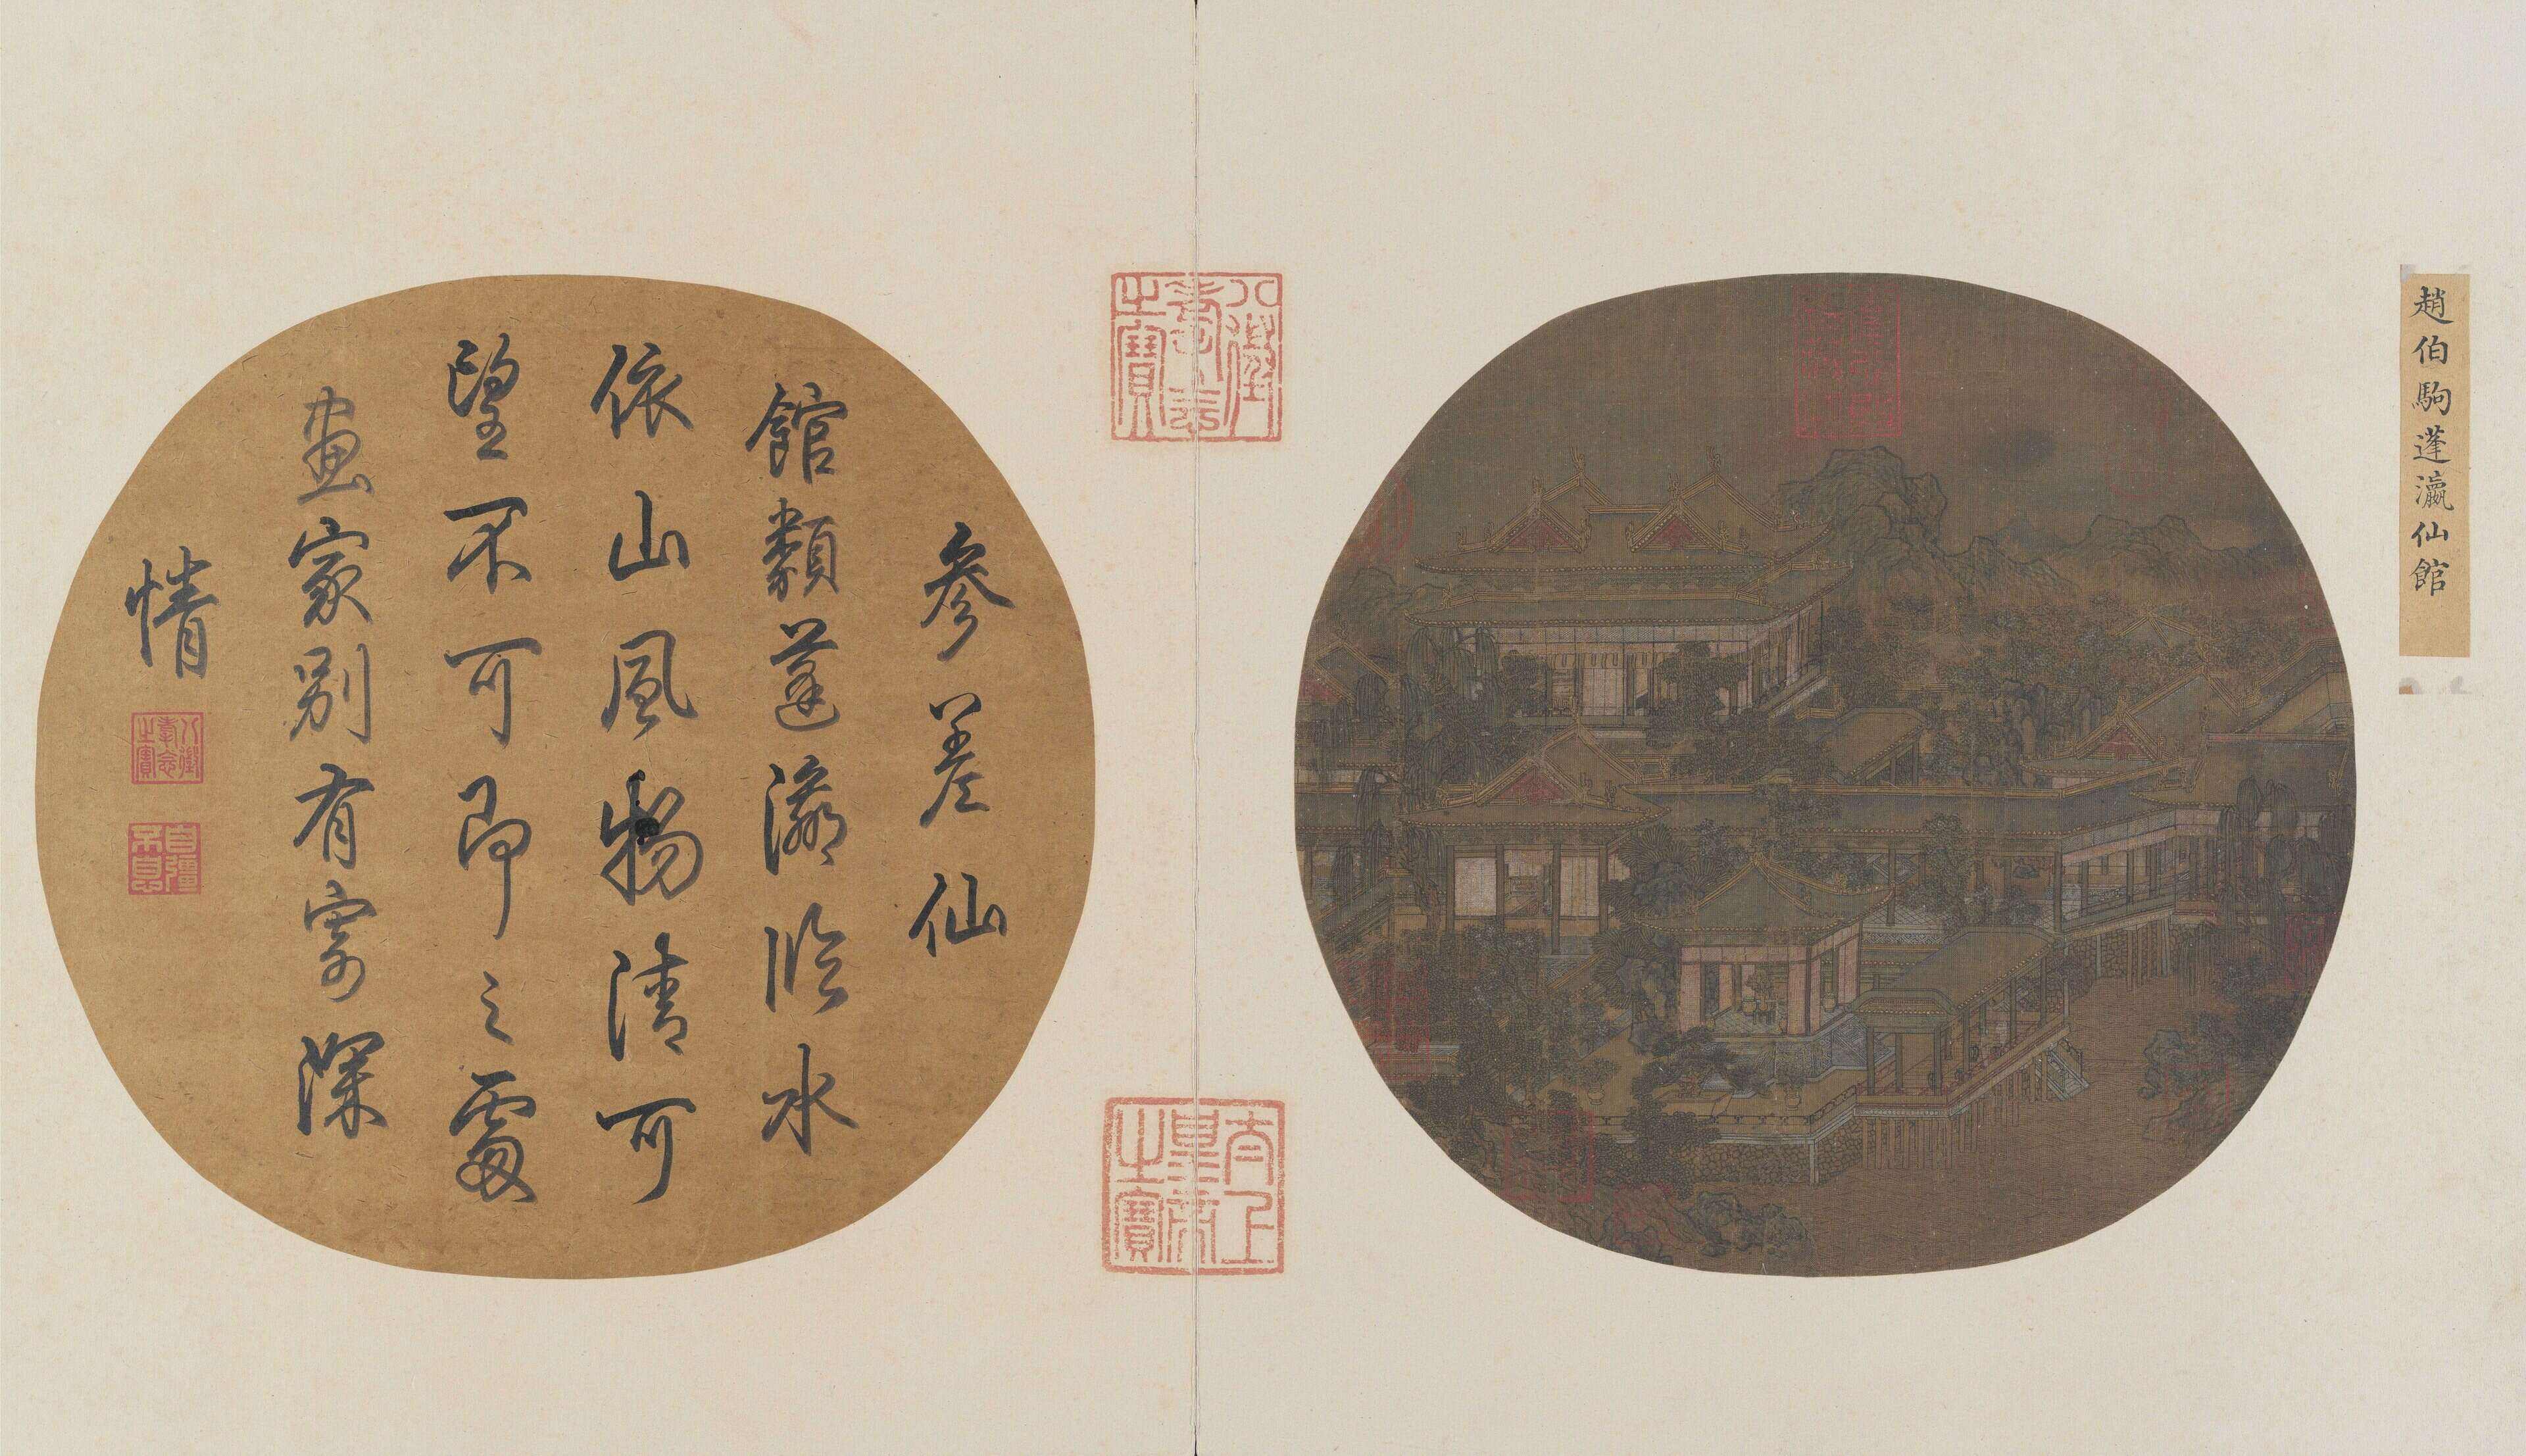 趙伯駒蓬瀛仙館
八徵耄念之寶
太上皇帝之寶
參差仙
館類蓬瀛臨水
依山風物清可
望不可即之處
畫家別有寄深
情
八徵耄念之寶
自彊不息